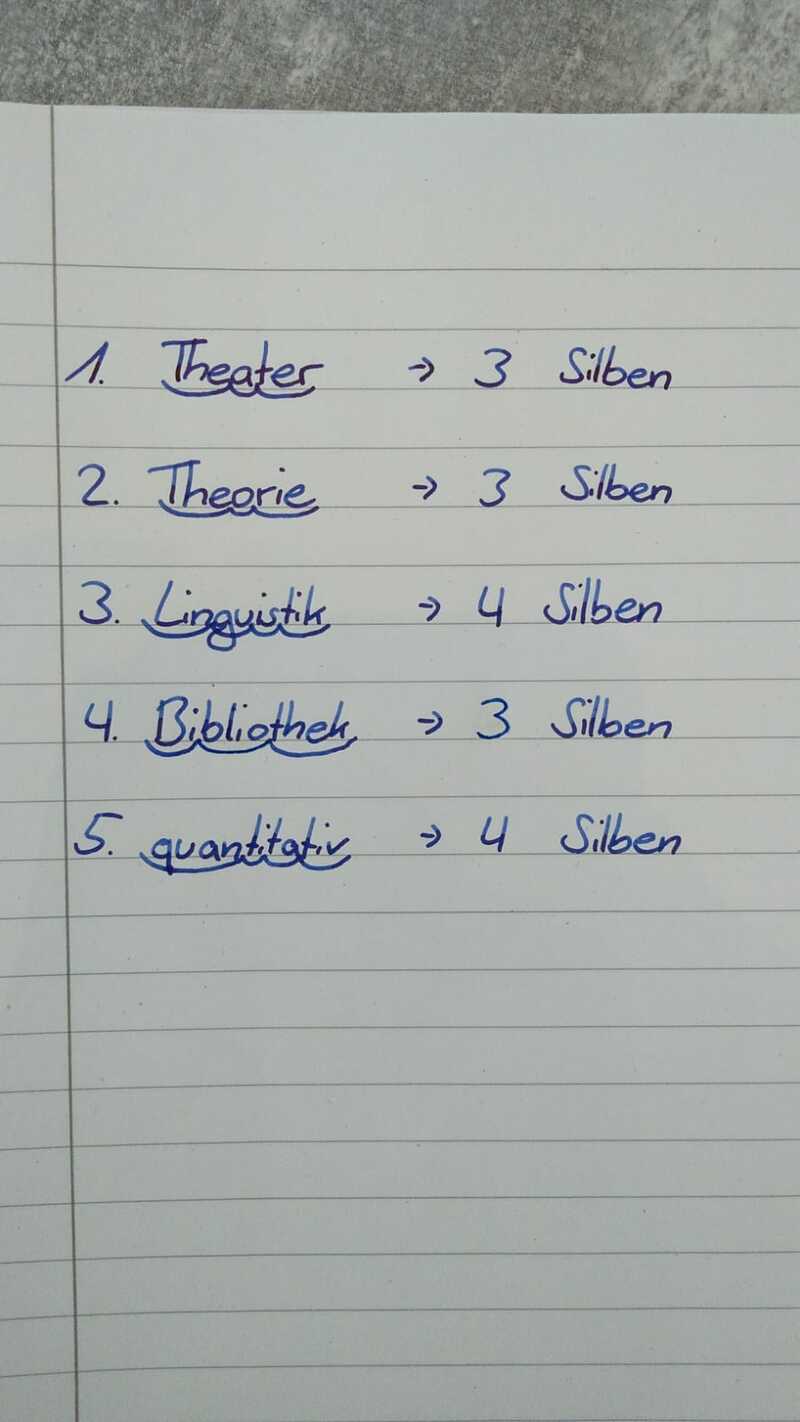 1. Theater → 3 Silben
2. Theorie → 3 Silben
3. Linguistik → 4 Silben
4. Bibliothek → 3 Silben
5. quantitativ → 4 Silben